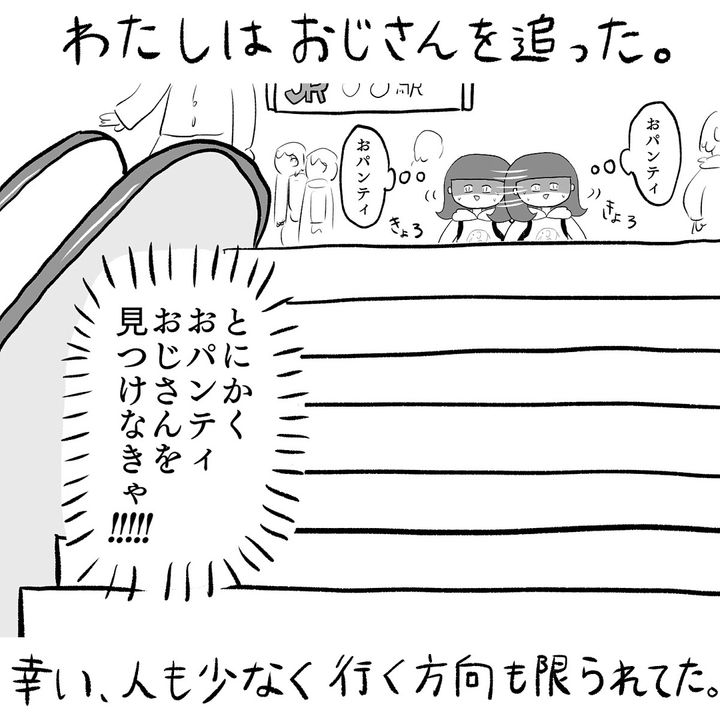 わたしは おじさんを追った。
JR〇〇駅
おパンティ
おパンティ
きょろ
きょろ
とにかく
おパンティ
おじさんを
見つけなきゃ
!!!!!
幸い、人も少なく 行く方向も限られてた。